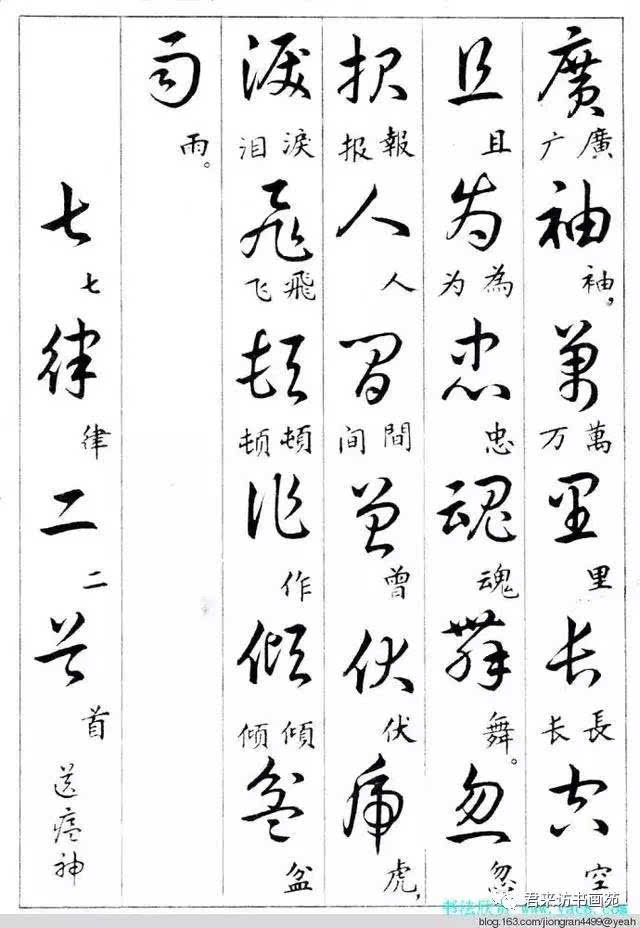 廣袖萬里长空
廣广 袖， 萬万 里 長长 空
且为忠魂舞忽
且 為为 忠 魂 舞。 忽
报人间曾伏虎
報报 人 間间 曾 伏 虎，
淚飞顿作倾盆
淚泪 飛飞 頓顿 作 傾倾 盆
雨
雨。
七律二首
七 律 二 首 送瘟神
书法欣
君来访书画苑
blog.163.com/jiongran4499@yeah